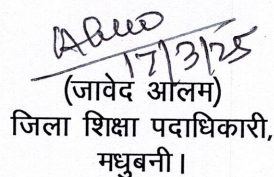 17/3/25
(जावेद आलम)
जिला शिक्षा पदाधिकारी,
मधुबनी।